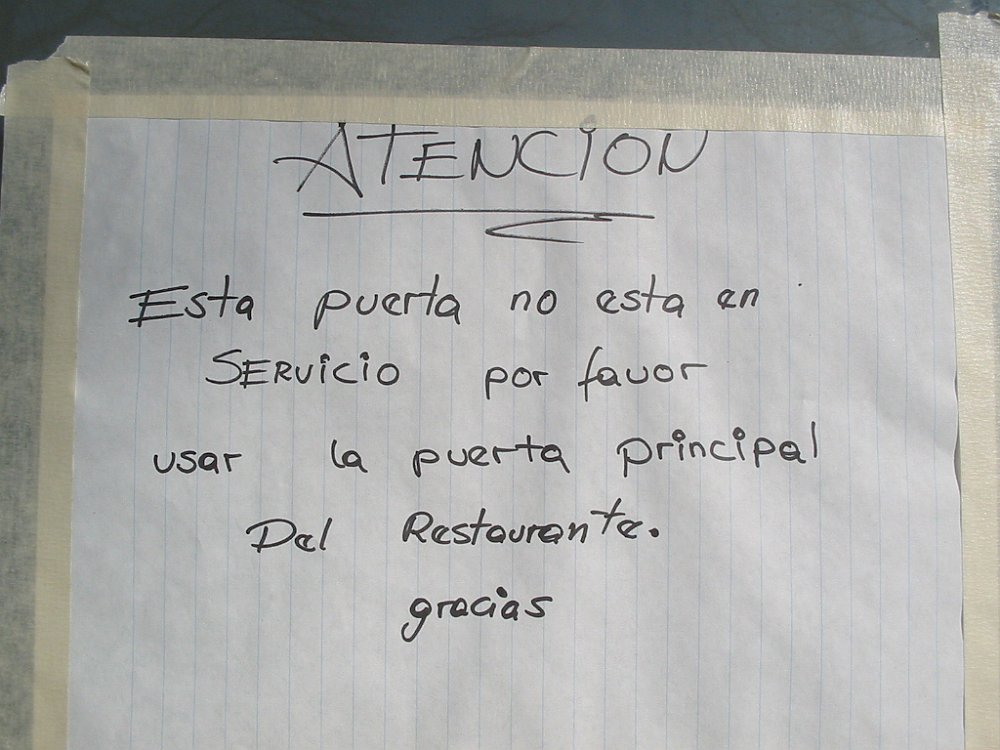 ATENCION
Esta puerta no esta en
SERViCiO por favor
usar la puerta principal
Del Restaurante.
gracias